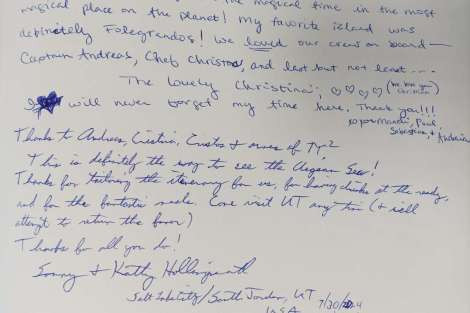 magical time in the most
magical place on the planet! My favorite island was
definetely Folegrandos! We loved our crew on board—
Captain Andreas, Chef Christos, and last but not least...
The Lovely Christina; ♡♡♡♡ (We love
will never forget my time here. Thank you!!!
Paul,
Sebastian, &
Thanks to Andreas, Cristos &
This is definitely the way to see the Aegean Sea!
Thanks for tailoring the itinerary for us, for having drinks at the ready,
and for the fantastic meals. Come visit UT any time (& I'll
attempt to return the favor)
Thanks for all you do!
& Kathy
Salt Lake City/South Jordan, UT 7/20/
USA